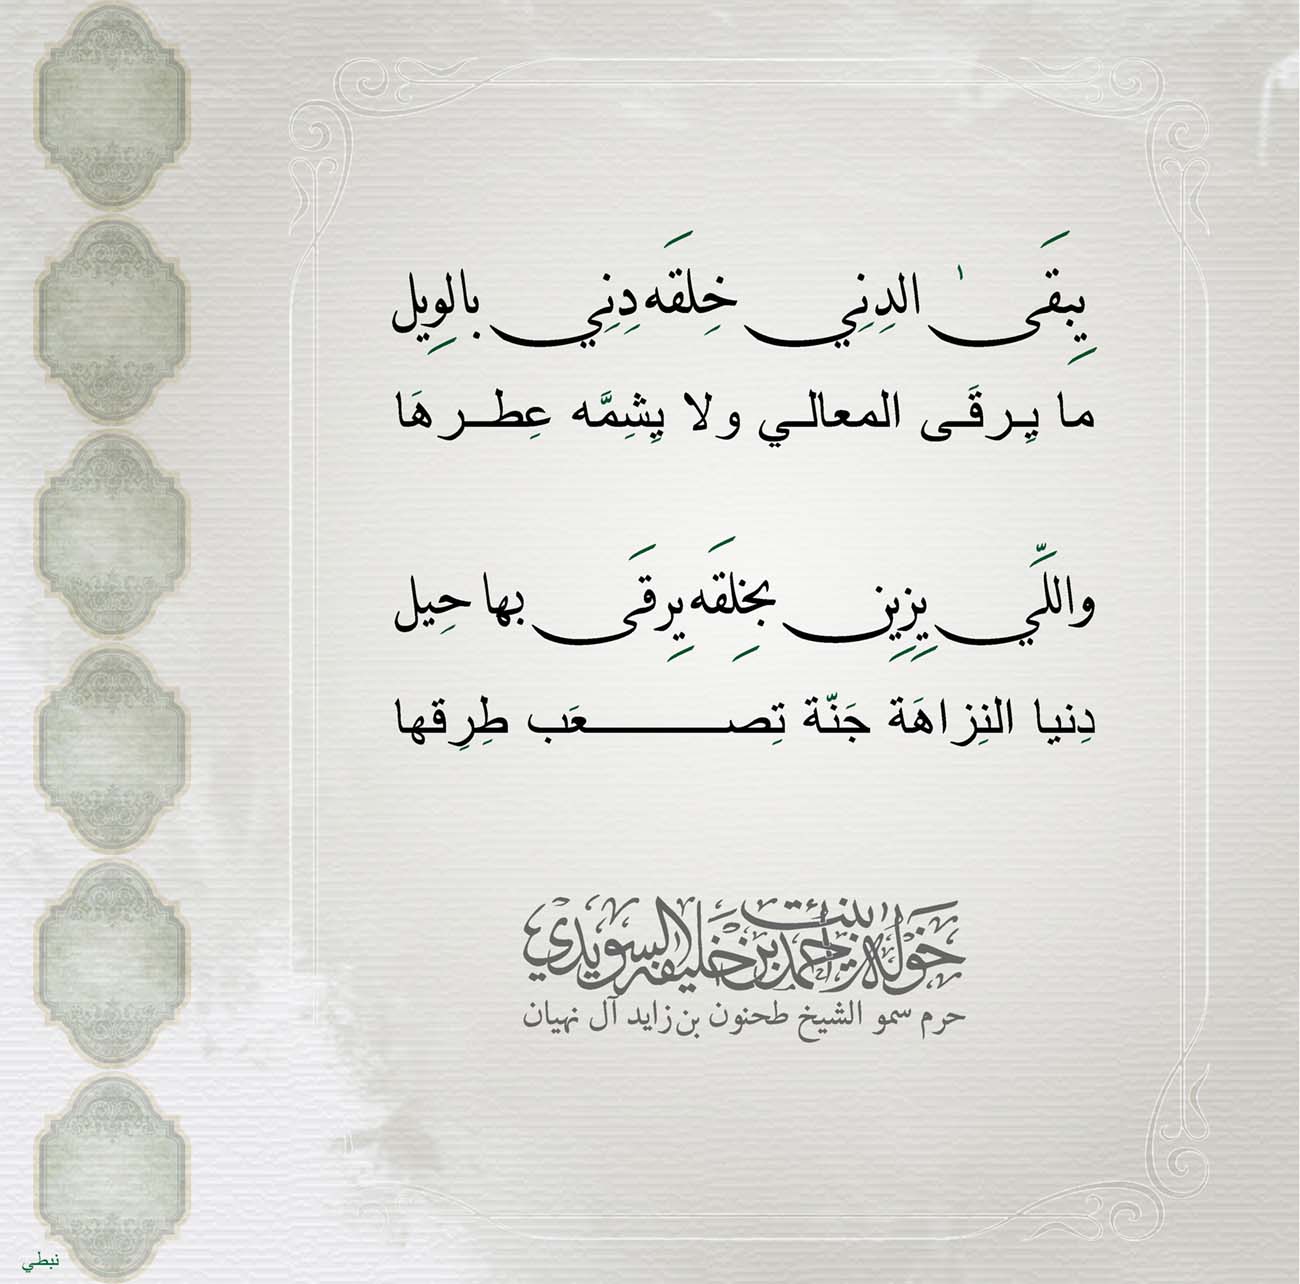 يِبقَىٰ الدِنِي خِلقَه دِنِي بالوِيل
ما يِرقَى المعالي ولا يِشِمَّه عِطرهَا
واللَّي يِزِين بخِلِقَه يِرقَى بها حِيل
دِنيا النِزاهَة جَنّة تِصعَب طِرِقها
خوله بنت احمد بن خليفه السويدي
حرم سمو الشيخ طحنون بن زايد آل نهيان
نبطي